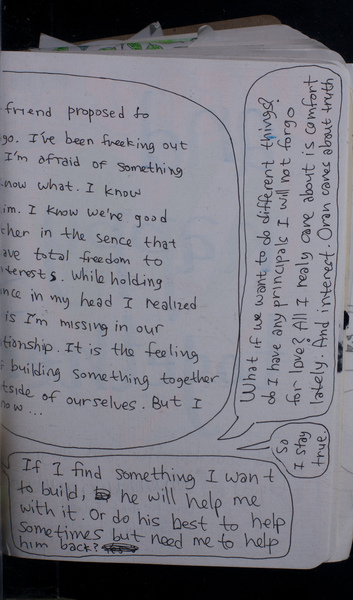 friend proposed to
go. I've been freeking out
I'm afraid of something
now what. I know
im. I know we're good
ther in the sence that
ave total freedom to
terests. While holding
nce in my head I realized
is I'm missing in our
tionship. It is the feeling
building something together
tside of ourselves. But I
now...
What if we want to do different things?
do I have any principals I will not forgo
for love? All I realy care about is comfort
lately. And interest. Oran cares about truth
So
I stay
true.
If I find something I want
to build, he will help me
with it. Or do his best to help
sometimes but need me to help
him back?